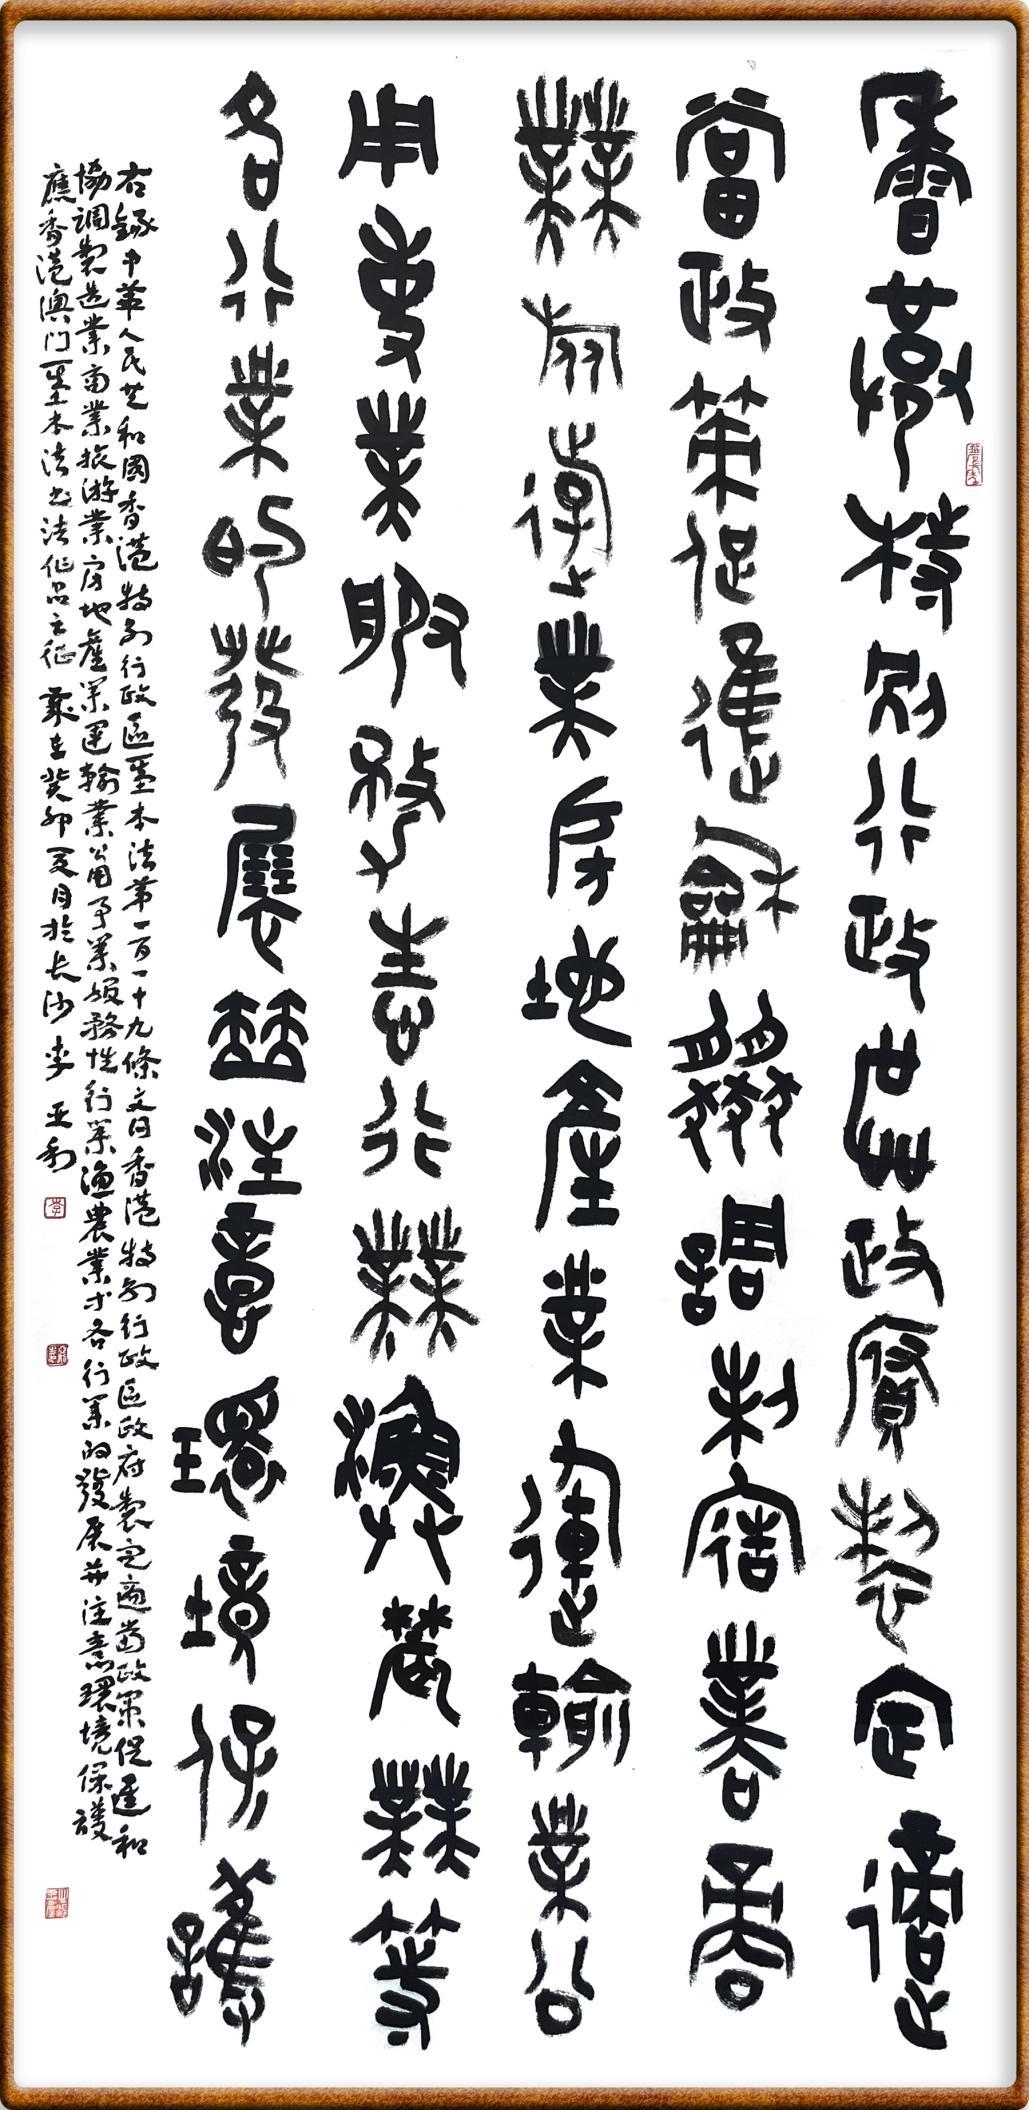 香港特別行政區政府製定適
當政策促進龢協調制造業商
業旅遊業房地產業運輸業公
用事業服務性行業漁農業等
各行業的發展並注意環境保護
右錄中華人民共和國香港特別行政區基本法第一百一十九條文曰香港特別行政區政府製定適當政策促進和
協調製造業商業旅游業房地產業運輸業公用事業服務性行業漁農業等各行業的發展并注意環境保護
應香港澳門基本法書法作品之征 歲在癸卯夏月於長沙 李亚利